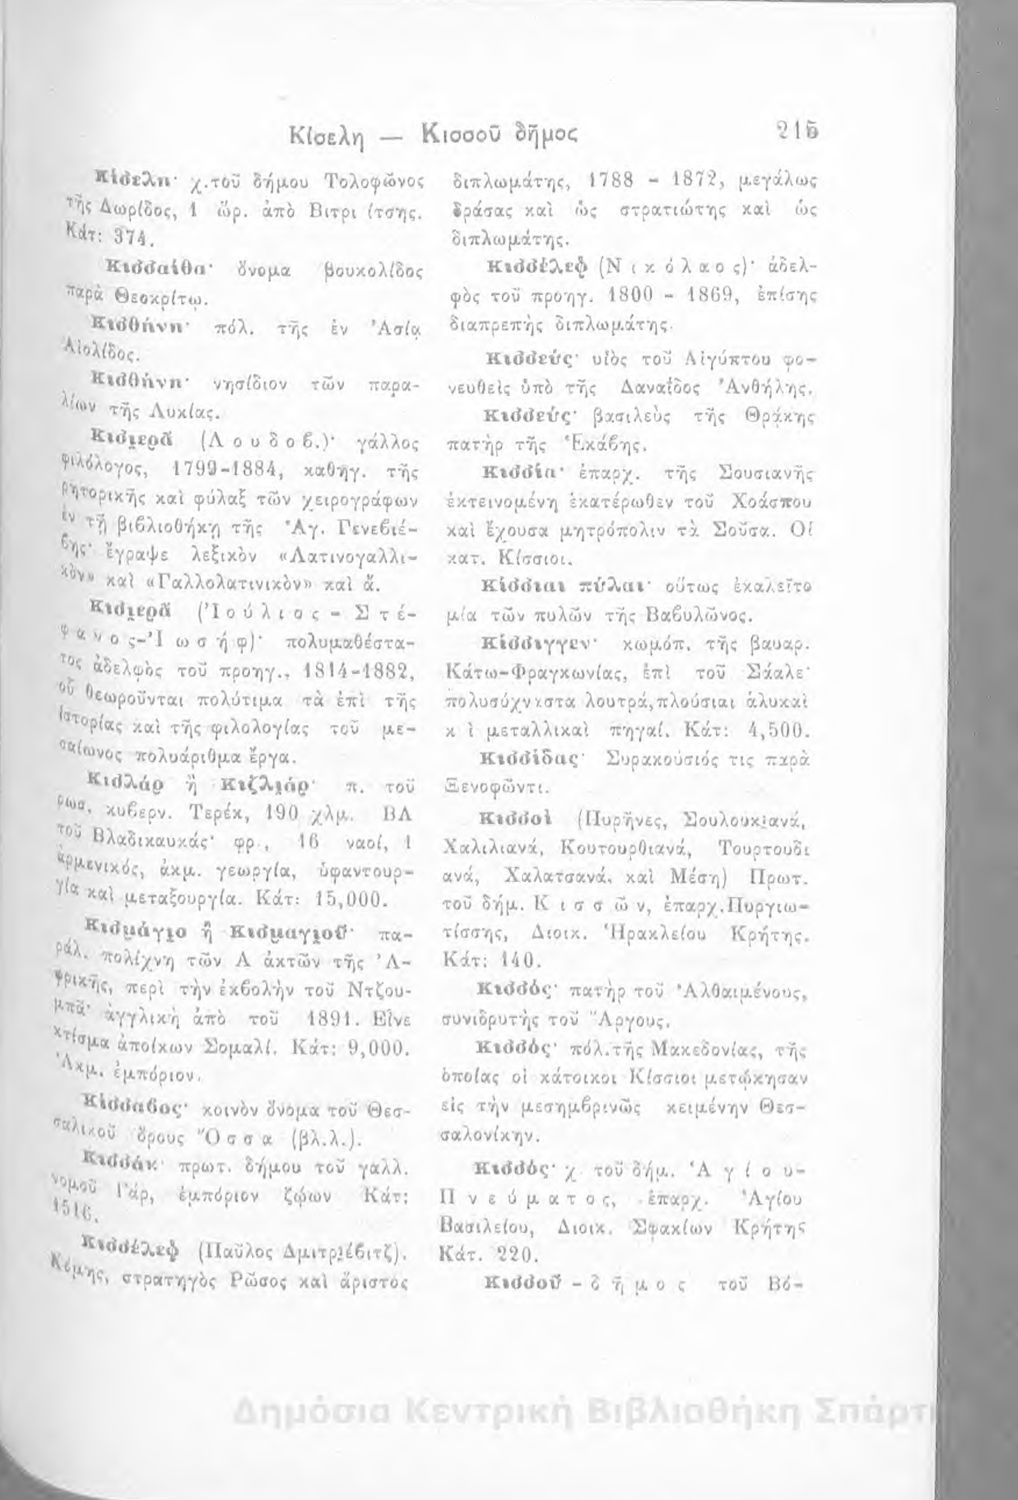 Κίσελη — Κισσοῦ δῆμος 215
Κίσελη· χ.τοῦ δήμου Τολοφῶνος
τῆς Δωρίδος, 1 ὥρ. ἀπὸ Βιτρινίτσης.
Κάτ: 374.
Κισσαίθα· ὄνομα βουκολίδος
παρὰ Θεοκρίτῳ.
Κισθήνη· πόλ. τῆς ἐν Ἀσίᾳ
Αἰολίδος.
Κισθήνη· νησίδιον τῶν παρα-
λίων τῆς Λυκίας.
Κισιερᾶ (Λουδοβ.)· γάλλος
φιλόλογος, 1799-1884, καθηγ. τῆς
ῥητορικῆς καὶ φύλαξ τῶν χειρογράφων
ἐν τῇ βιβλιοθήκῃ τῆς Ἁγ. Γενεβιέ-
βης· ἔγραψε λεξικὸν «Λατινογαλλι-
κὸν» καὶ «Γαλλολατινικὸν» καὶ ἄ.
Κισιερᾶ (Ἰούλιος - Στέ-
φανος-Ἰωσήφ)· πολυμαθέστα-
τος ἀδελφὸς τοῦ προηγ., 1814-1882,
οὗ θεωροῦνται πολύτιμα τὰ ἐπὶ τῆς
ἱστορίας καὶ τῆς φιλολογίας τοῦ με-
σαίωνος πολυάριθμα ἔργα.
Κισλάρ ἢ Κιζλιάρ· π. τοῦ
ῥωσ. κυβερν. Τερέκ, 190 χλμ. ΒΑ
τοῦ Βλαδικαυκάς· φρ., 16 ναοί, 1
ἀρμενικός, ἀκμ. γεωργία, ὑφαντουρ-
γία καὶ μεταξουργία. Κάτ: 15,000.
Κισμάγιο ἢ Κισμαγιοῦ· πα-
ράλ. πολίχνη τῶν Α ἀκτῶν τῆς Ἀ-
φρικῆς, περὶ τὴν ἐκβολὴν τοῦ Ντζου-
μπᾶ· ἀγγλικὴ ἀπὸ τοῦ 1891. Εἶνε
κτίσμα ἀποίκων Σομαλί. Κάτ: 9,000.
Ἀκμ. ἐμπόριον.
Κίσσαβος· κοινὸν ὄνομα τοῦ Θεσ-
σαλικοῦ ὄρους Ὄσσα (βλ.λ.).
Κισσάκ· πρωτ. δήμου τοῦ γαλλ.
νομοῦ Γάρ, ἐμπόριον ζῴων Κάτ:
1516.
Κισσέλεφ (Παῦλος Δμιτριέβιτζ).
Κόμης, στρατηγὸς Ῥῶσος καὶ ἄριστος
διπλωμάτης, 1788 - 1872, μεγάλως
δράσας καὶ ὡς στρατιώτης καὶ ὡς
διπλωμάτης.
Κισσέλεφ (Νικόλαος)· ἀδελ-
φὸς τοῦ προηγ. 1800 - 1869, ἐπίσης
διαπρεπὴς διπλωμάτης.
Κισσεύς· υἱὸς τοῦ Αἰγύπτου φο-
νευθεὶς ὑπὸ τῆς Δαναΐδος Ἀνθήλης.
Κισσεύς· βασιλεὺς τῆς Θρᾴκης
πατὴρ τῆς Ἑκάβης.
Κισσία· ἐπαρχ. τῆς Σουσιανῆς
ἐκτεινομένη ἑκατέρωθεν τοῦ Χοάσπου
καὶ ἔχουσα μητρόπολιν τὰ Σοῦσα. Οἱ
κατ. Κίσσιοι.
Κίσσιαι πύλαι· οὕτως ἐκαλεῖτο
μία τῶν πυλῶν τῆς Βαβυλῶνος.
Κίσσιγγεν· κωμόπ. τῆς βαυαρ.
Κάτω-Φραγκωνίας, ἐπὶ τοῦ Σάαλε·
πολυσύχνιστα λουτρά,πλούσιαι ἁλυκαὶ
κ ὶ μεταλλικαὶ πηγαί. Κάτ: 4,500.
Κισσίδας· Συρακούσιός τις παρὰ
Ξενοφῶντι.
Κισσοὶ (Πυρῆνες, Σουλουκιανά,
Χαλιλιανά, Κουτουρθιανά, Τουρτουδι
ανά, Χαλατσανά, καὶ Μέση) Πρωτ.
τοῦ δήμ. Κισσῶν, ἐπαρχ.Πυργιω-
τίσσης, Διοικ. Ἡρακλείου Κρήτης.
Κάτ: 140.
Κισσός· πατὴρ τοῦ Ἀλθαιμένους,
συνιδρυτὴς τοῦ Ἄργους.
Κισσός· πόλ.τῆς Μακεδονίας, τῆς
ὁποίας οἱ κάτοικοι Κίσσιοι μετῴκησαν
εἰς τὴν μεσημβρινῶς κειμένην Θεσ-
σαλονίκην.
Κισσός· χ. τοῦ δήμ. Ἁγίου-
Πνεύματος, ἐπαρχ. Ἁγίου
Βασιλείου, Διοικ. Σφακίων Κρήτης
Κάτ. 220.
Κισσοῦ - δῆμος τοῦ Βό-
Δημόσια Κεντρική Βιβλιοθήκη Σπάρτ